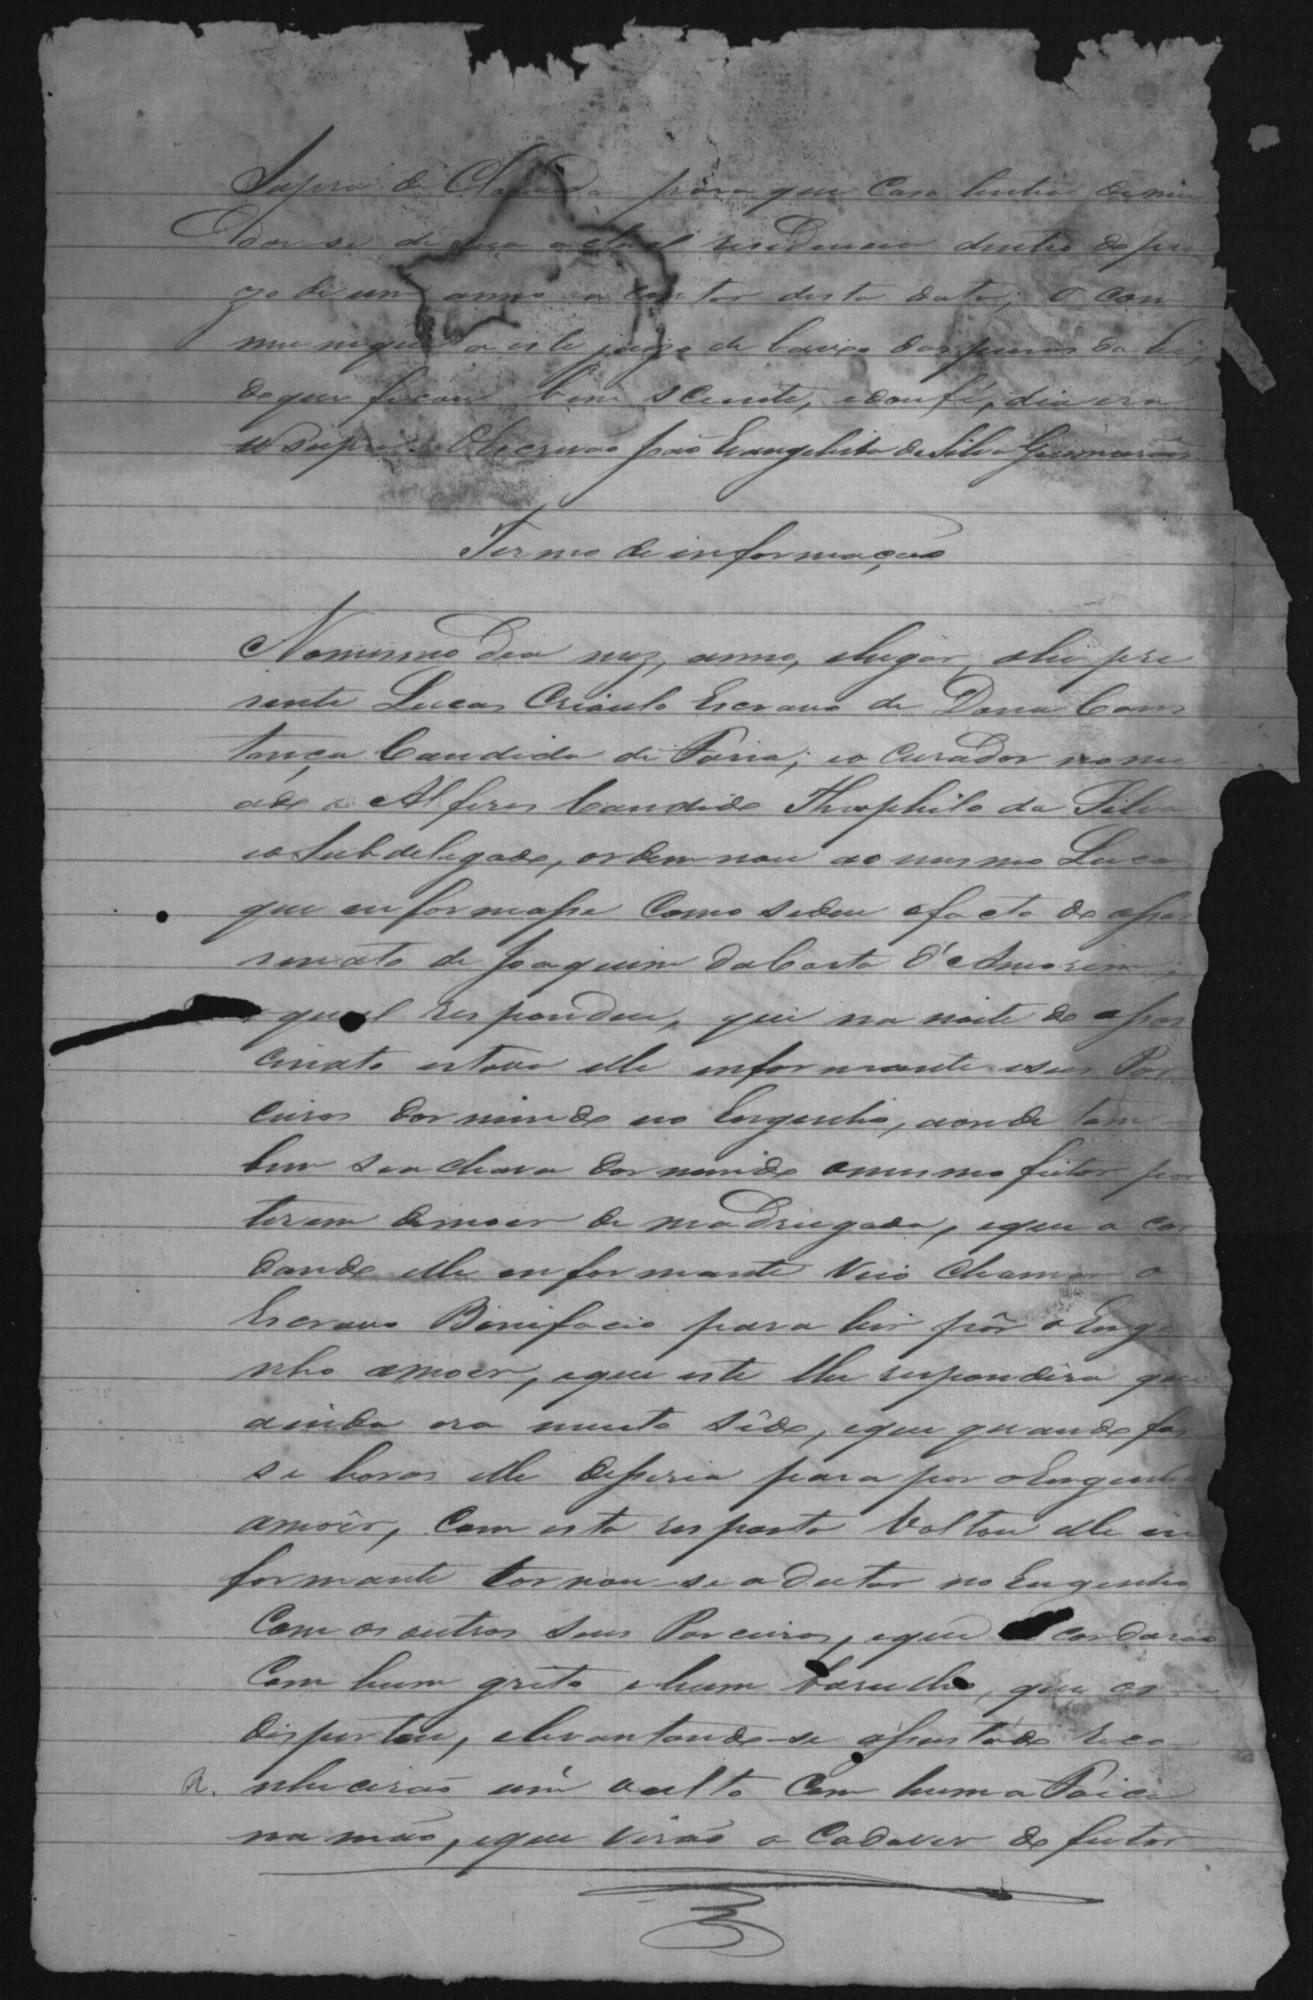 Supra de Clarada para que caso tenha de mu
dar-se de sua actual residencia dentro do pra
zo de um anno a contar desta data, o com
munique a este juizo de baixo das penas da lei,
de que ficou bem sciente, e dou fé, dia era
ut supra. O Escrivão João Evangelista da Silva Guimarães
Termo de informação
No mesmo dia mez, anno, e lugar, ahi pre
sente Lucas Crioulo Escravo de Dona Cons
tança Candida de Faria; e o curador nome
ado o Alferes Candido Theophilo da Silva
e o Subdelegado, ordennou ao mesmo Lucas
que informasse como se deu o facto do assas
sinato de Joaquim da Costa d'Amorim;
o qual respondeu, que na noite do assas
sinato estava elle informante e seus Par
ceiros dormindo no Engenho, aonde tam
bem se achava dormindo o mesmo feitor por
terem de moer de madrugada, e que a cor
dando elle informante veio chamar o
Escravo Bonifacio para hir pôr o Enge
nho amoer, e que este lhe respondera que
ainda era muito sêdo, e que quando fos
se horas elle desseria para por o Engenho
amoêr, com esta resposta Voltou elle in
formante tornou-se a deitar no Engenho
com os outros seus Parceiros, e que a cordarão
com hum grito e hum barulho, que os
dispertou, e levantando-se assustado reco
nhecerão um vulto com huma Foice
na mão, e que virão o cadaver do feitor